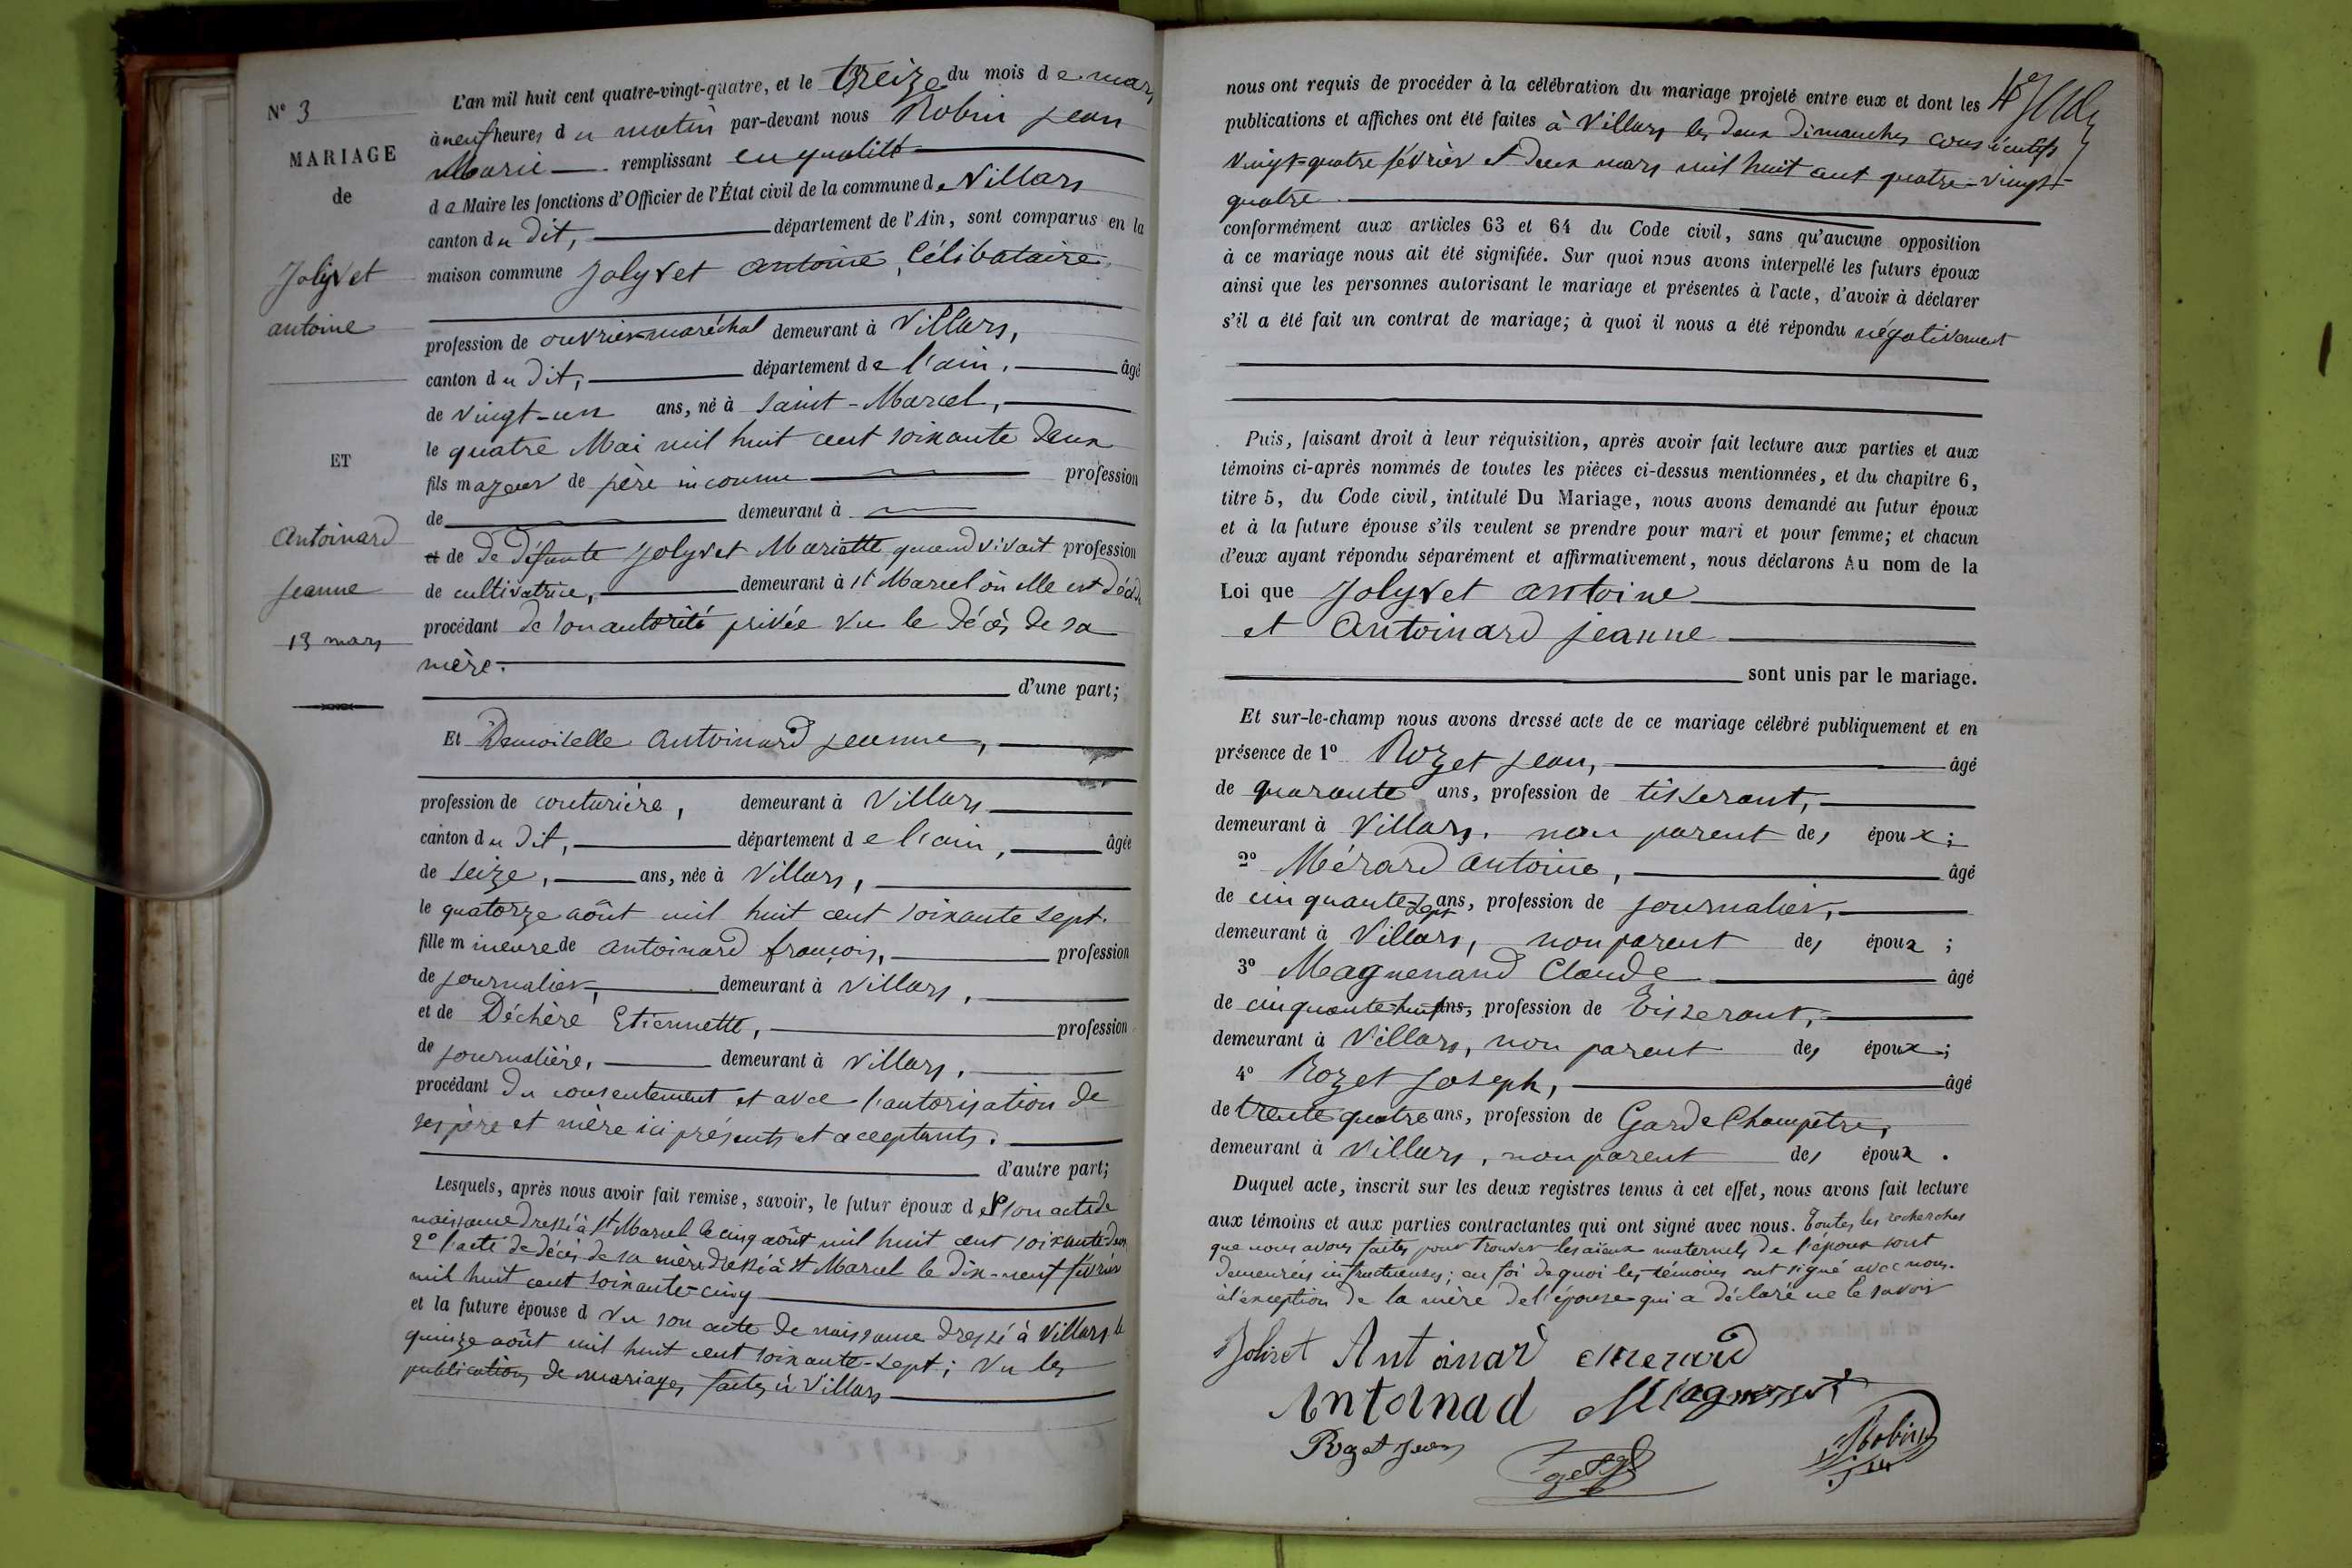 N° 3
MARIAGE
de
Jolyvet
antoine
ET
Antoinard
Jeanne
13 mars
L'an mil huit cent quatre-vingt-quatre, et le treize du mois de mars
à neuf heures du matin par-devant nous Robin Jean
Marie remplissant en qualité
de Maire les fonctions d'Officier de l'État civil de la commune de Villars
canton du dit, département de l'Ain, sont comparus en la
maison commune Jolyvet antoine, Célibataire,
profession de ouvrier-maréchal demeurant à Villars,
canton du dit, département de l'ain, âgé
de vingt-un ans, né à saint-Marcel,
le quatre Mai mil huit cent soixante deux
fils majeur de père inconnu profession
de demeurant à
et de de défunte Jolyvet Mariette quand vivait profession
de cultivatrice, demeurant à St Marcel où elle est décédé
procédant de son autorité privée vu le décès de sa
mère.
d'une part;
Et Demoiselle Antoinard Jeanne,
profession de couturière, demeurant à Villars
canton du dit, département de l'ain, âgée
de seize, ans, née à Villars,
le quatorze août mil huit cent soixante sept.
fille mineure de antoinard françois, profession
de journalier, demeurant à Villars,
et de Déchère Etiennette, profession
de journalière, demeurant à Villars,
procédant du consentement et avec l'autorisation de
ses père et mère ici présents et acceptants.
d'autre part;
Lesquels, après nous avoir fait remise, savoir, le futur époux de 1° son acte de
naissance dressé à St Marcel le cinq août mil huit cent soixante deux
2° l'acte de décès de sa mère dressé à St Marcel le dix-neuf février
mil huit cent soixante-cinq
et la future épouse d vu son acte de naissance dressé à Villars le
quinze août mil huit cent soixante-sept; Vu les
publications de mariages faites à Villars
nous ont requis de procéder à la célébration du mariage projeté entre eux et dont les
publications et affiches ont été faites à Villars les deux dimanches consécutifs
vingt-quatre février et deux mars mil huit cent quatre-vingt-
quatre.
conformément aux articles 63 et 64 du Code civil, sans qu'aucune opposition
à ce mariage nous ait été signifiée. Sur quoi nous avons interpellé les futurs époux
ainsi que les personnes autorisant le mariage et présentes à l'acte, d'avoir à déclarer
s'il a été fait un contrat de mariage; à quoi il nous a été répondu négativement
Puis, faisant droit à leur réquisition, après avoir fait lecture aux parties et aux
témoins ci-après nommés de toutes les pièces ci-dessus mentionnées, et du chapitre 6,
titre 5, du Code civil, intitulé Du Mariage, nous avons demandé au futur époux
et à la future épouse s'ils veulent se prendre pour mari et pour femme; et chacun
d'eux ayant répondu séparément et affirmativement, nous déclarons Au nom de la
Loi que Jolyvet antoine
et Antoinard Jeanne
sont unis par le mariage.
Et sur-le-champ nous avons dressé acte de ce mariage célébré publiquement et en
présence de 1° Rozet Jean, âgé
de quarante ans, profession de tisserant,
demeurant à Villars, non parent des époux;
2° Mérard Antoine, âgé
de cinquante-sept ans, profession de journalier,
demeurant à Villars, non parent des époux;
3° Magnenand Claude âgé
de cinquante-huit ans, profession de Tisserant,
demeurant à Villars, non parent des époux;
4° Rozet Joseph, âgé
de trente quatre ans, profession de Garde Champêtre,
demeurant à Villars, non parent des époux.
Duquel acte, inscrit sur les deux registres tenus à cet effet, nous avons fait lecture
aux témoins et aux parties contractantes qui ont signé avec nous. Toutes les recherches
que nous avons faites pour trouver les aïeux maternels de l'époux sont
demeurées infructueuses; en foi de quoi les témoins ont signé avec nous.
à l'exception de la mère de l'épouse qui a déclaré ne le savoir
Jolivet Antoinard Merard
Antoinad
Rozet Jean
Robin